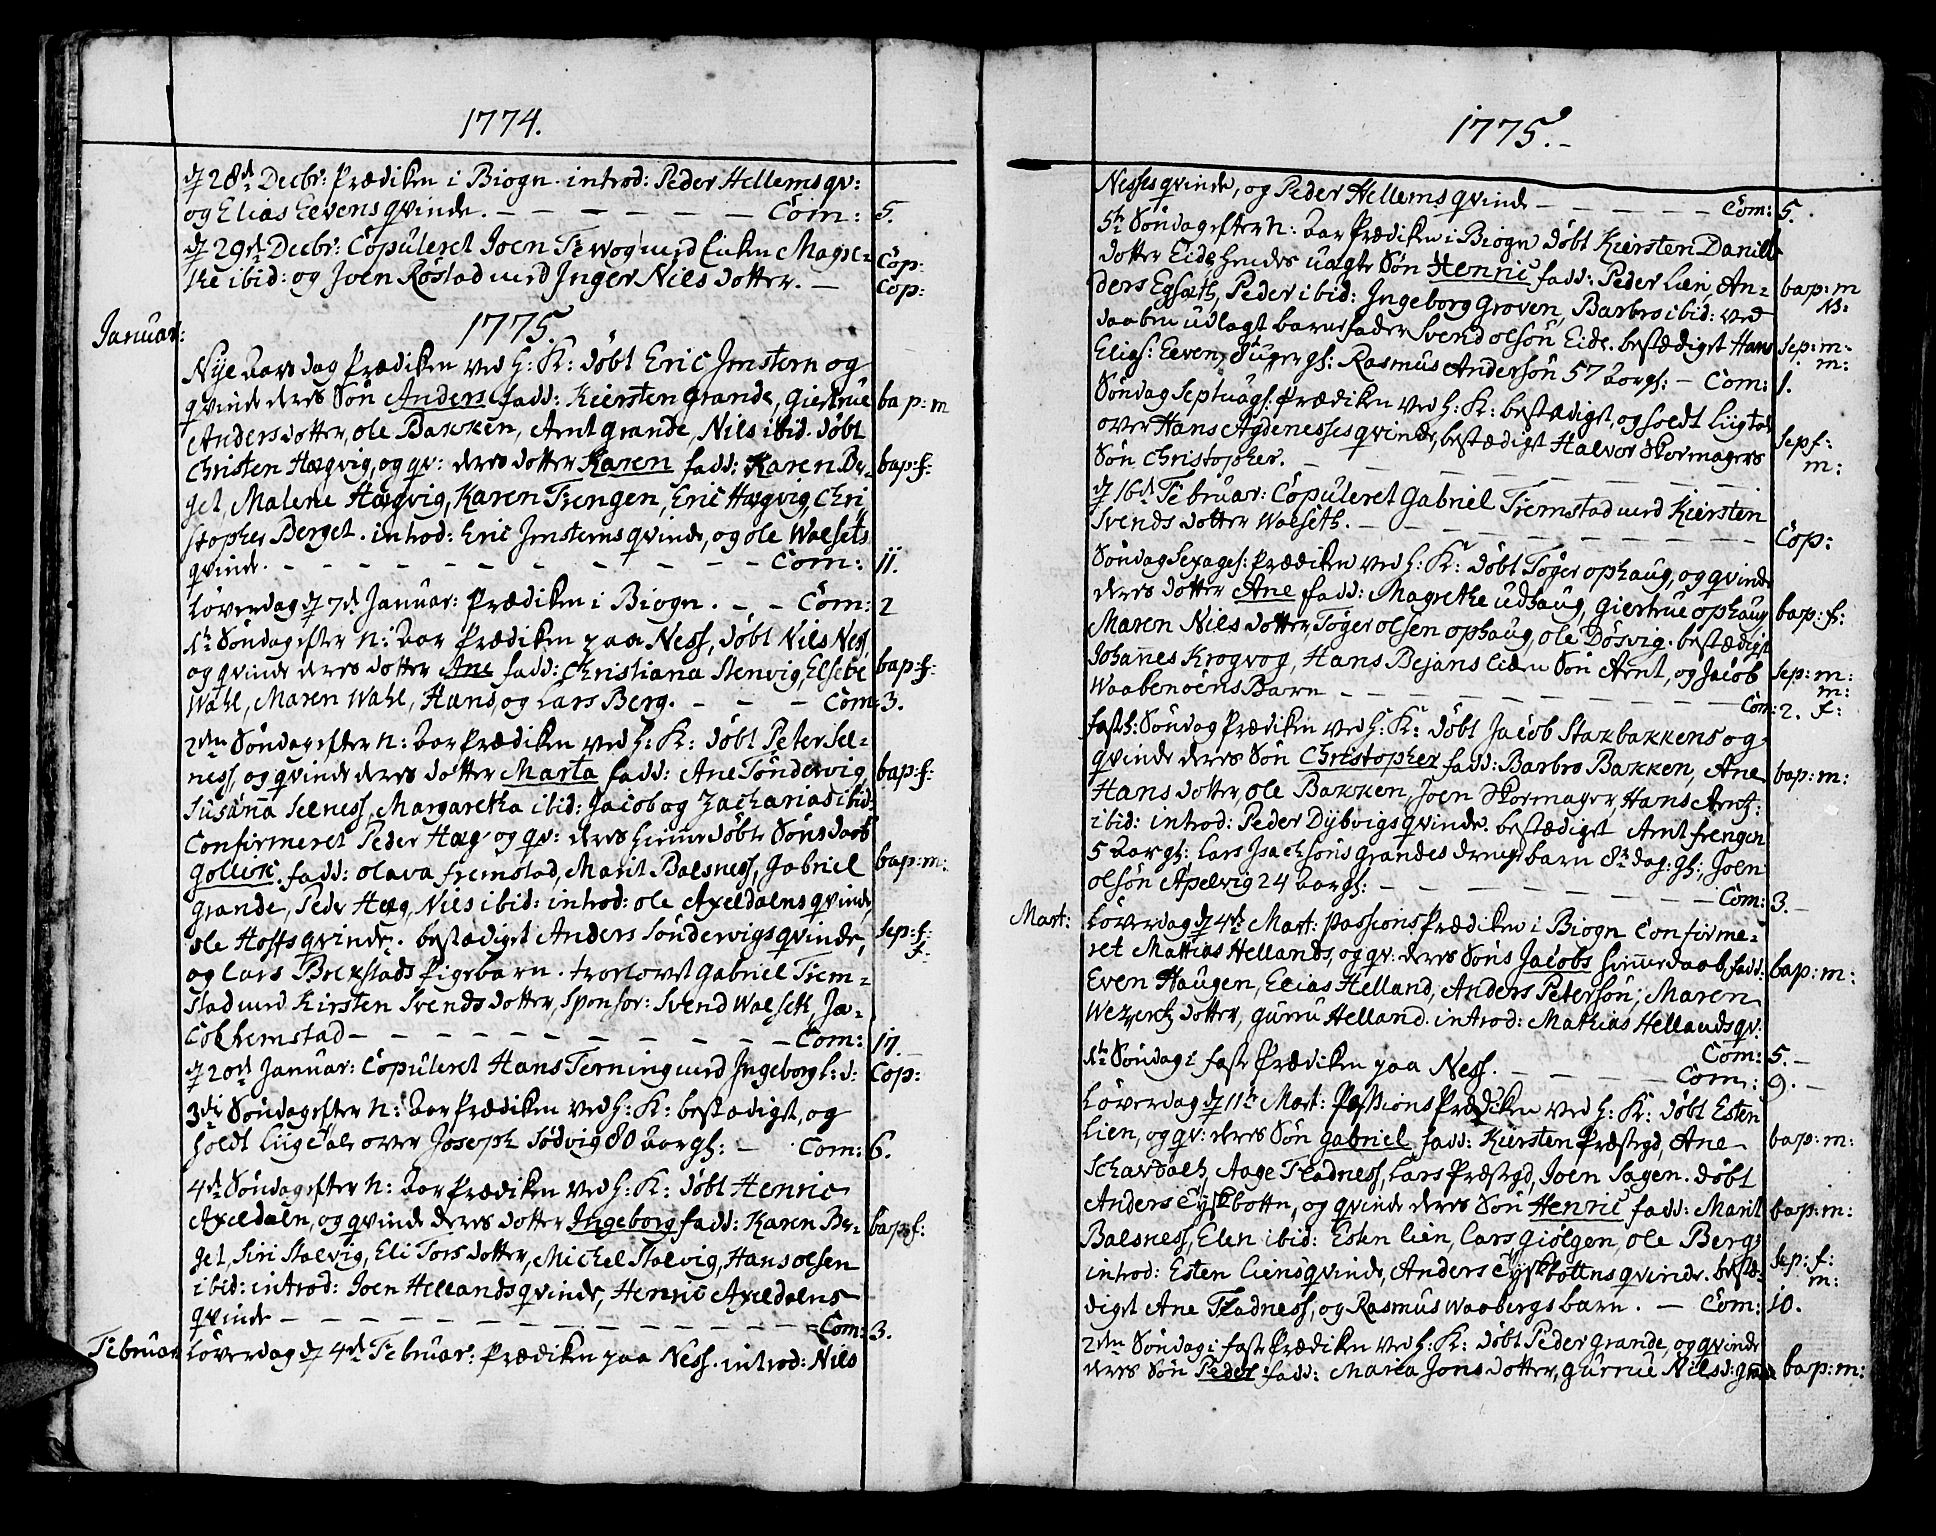 1774.
d 28de Decbr: Prædiken i Biogn. introd: Peder Hellems qv:
og Elias Eevens qvinde. — — — — — — Com: 5.
d 29de Decbr: Copuleret Joen Terwog med Enken Magre- Cop:
the ibid: og Joen Röstad med Inger Niels dotter. — Cop:
Januar: 1775.
Nye Aars dag Prædiken ved H: K: döbt Eric Jmstern og
qvinde deres Sön Anders fadd: Kiersten Grande, Giertrue bap: m
Anders dotter, Ole Bakken, Arnt Grande, Nils ibid. döbt
Christen Hægvig, og qv: deres dotter Karen fadd: Karen Ber- bap: f:
get, Malene Hægvig, Karen Trengen, Eric Hægvig, Chri
stopher Berget. introd: Eric Jmsterns qvinde, og Ole Walsets
qvinde. — — — — — — — — — Com: 11.
Löverdag d 7de Januar: Prædiken i Biogn. — — Com: 2
1te Söndag efter N: Aar Prædiken paa Ness, döbt Nils Ness,
og qvinde deres dotter Ane fadd: Christiana Stenvig, Elsebe bap: f:
Wahl, Maren Wahl, Hans, og Lars Berg. — — — Com: 3.
2den Söndag efter N: Aar Prædiken ved H: K: döbt Peter Sel-
ness, og qvinde deres dotter Marta fadd: Ane Sönderwig, bap: f:
Susanna Selness, Margaretha ibid: Jacob og Zacharias ibid:
Confirmeret Peder Hæg og qv: deres hiemmedöbte Söns daab
Gollich. fadd: Olava Fremstad, Marit Balsness, Gabriel bap: m:
Grande, Peder Hæg, Nils ibid: introd: Ole Axeldalens qvinde,
Ole Hoffs qvinde. bestædiget Anders Sönderwigs qvinde, Sep: f:
og Lars Brekstads Pigebarn. troelovet Gabriel Trem- f:
stad med Kirsten Svends dotter, Sponsor: Svend Walseth, Ja-
cob Hemstad — — — — — — — — Com: 17.
d 20de Januar: Copuleret Hans Terning med Ingeborg L: d: Cop:
3die Söndag efter N: Aar Prædiken ved H: K: bestædiget, og
holdt Liigtale over Joseph Södvig 80 Aar gl: — Com: 6.
4de Söndag efter N: Aar Prædiken ved H: K: döbt Henric
Axeldalen, og qvinde deres dotter Ingeborg fadd: Karen Ber- bap: f:
get, Siri Stalvig, Eli Tors dotter, Michel Stalvig, Hans Olsen
ibid: introd: Joen Hellands qvinde, Henric Axeldalens
qvinde — — — — — — — — — — Com: 3.
Februar Löverdag d 4de Februar: Prædiken paa Ness. introd: Nils
1775.
Nesses qvinde, og Peder Hellems qvinde — — — — — Com: 5.
5te Söndag efter N: Aar Prædiken i Biogn döbt Kiersten Daniels
dotter Eide hendes uægte Sön Henric fadd: Peder Lien, An- bap: m
ders Egseth, Peder ibid: Ingeborg Groven, Barbro ibid: ved NB:
daaben udlagt barnefader Svend Olsön Eide. bestædiget Hans Sep: m:
Elias: Eeven, gl: Rasmus Andersön 57 Aar gl: — Com: 1. m:
Söndag Septuages: Prædiken ved H: K: bestædiget, og holdt Liigtale
over Hans Agdenesses qvinde, bestædigt Halvor Skormagers Sep f:
Sön Christopher. — — — — — — — m:
d 16de Februar: Copuleret Gabriel Tremstad med Kiersten
Svends dotter Walseth. — — — — — — — Cop:
Söndag Sexages: Prædiken ved H: K: döbt Töger Ophaug, og qvinde
deres dotter Ane fadd: Magrethe Udhaug, Giertrue Ophaug bap: f:
Maren Nils dotter, Töger Olsen Ophaug, Ole Dösvig. bestædiget
Johannes Krogvog, Hans Bejans liden Sön Arnt, og Jacob Sep: m:
Waabenöens Barn — — — — — — — — m:
Com: 2. f:
Fast: Söndag Prædiken ved H: K: döbt Jacob Stakbakkens og
qvinde deres Sön Christopher fadd: Barbro Bakken, Ane bap: m:
Hans dotter, Ole Bakken, Joen Skormager, Hans Arntz:
ibid: introd: Peder Dybvigs qvinde. bestædiget Arnt Frengen
5 Aar gl: Lars Isachsöns Grandes drenge barn 8te dag: gl:, Joen
Olsön Apelvig 24 Aar gl: — — — — — — Com: 3.
Mart: Löverdag d 4de Mart: Passions Prædiken i Biogn Confirme-
ret Mattias Hellands, og qv: deres Söns Jacobs hiemmedaab, fadd: bap: m:
Even Haugen, Elias Helland, Anders Petersön; Maren
Wezertz dotter, Gurru Helland. introd: Mathias Hellands qv:
Com: 5.
1te Söndag i Faste Prædiken paa Ness. — — — — Com: 9.
Löverdag d 11te Mart: Passions Prædiken ved H: K: döbt Esten
Lien, og qv: deres Sön Gabriel fadd: Kiersten Præstgd, Ane bap: m:
Schavdalh, Aage Fladness, Lars Præstgd, Joen Sagen. döbt
Anders Tyskbotten, og qvinde deres Sön Henric fadd: Marit bap: m:
Balsness, Elen ibid: Esten Lien, Lars Giölgen, Ole Berg:
introd: Esten Liens qvinde, Anders Tyskbottens qvinde. bestæ- Sep: f:
diget Ane Fladness, og Rasmus Waabergs barn. — Com: 10. m:
2den Söndag i Faste Prædiken ved H: K: döbt Peder Grande, og qvinde
deres Sön Peder fadd: Maria Jons dotter, Gurrue Nilsd: Grande bap: m: